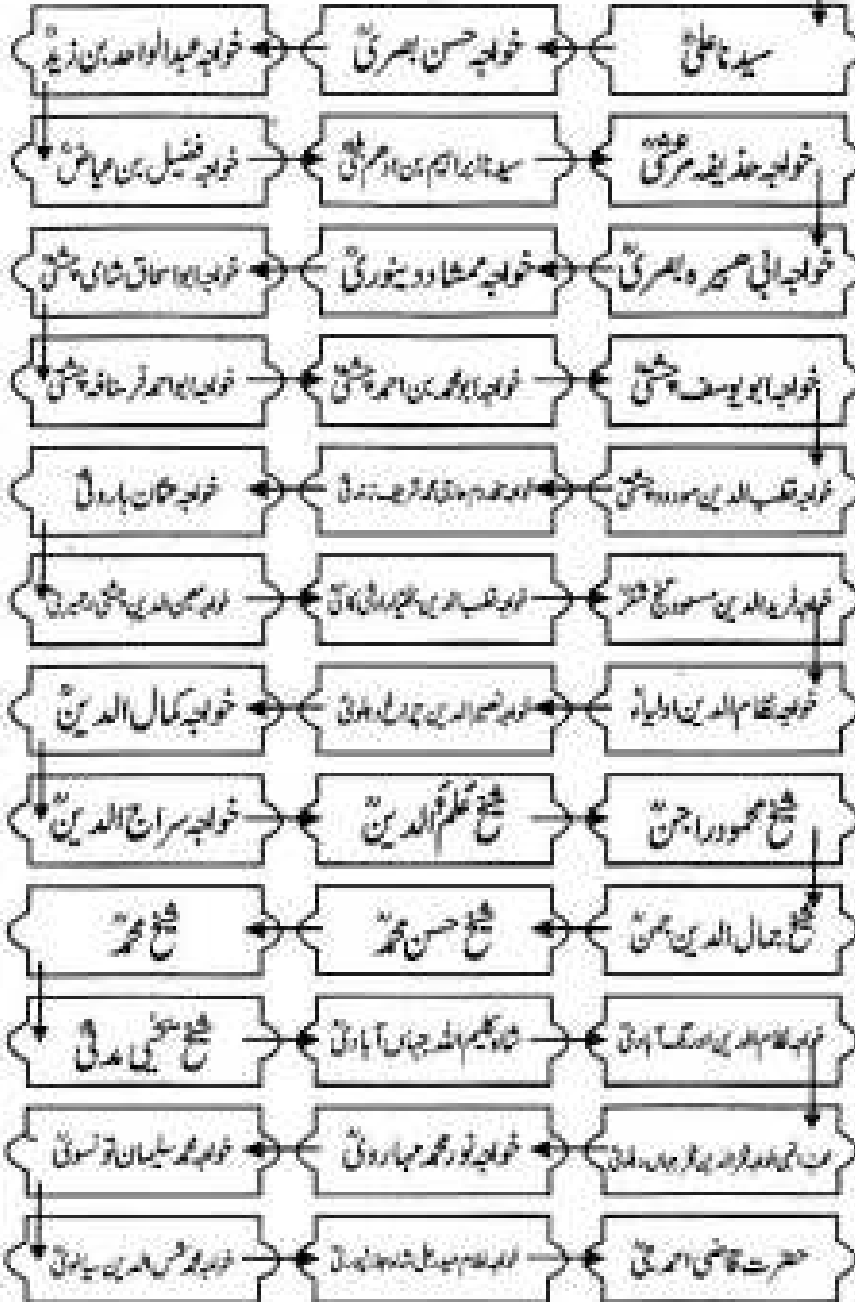 سیدنا علیؓ
خواجہ حسن بصریؒ
خواجہ عبدالواحد بن زیدؒ
خواجہ فضیل بن عیاضؒ
سیدنا ابراہیم بن ادھم بلخیؒ
خواجہ حذیفہ مرعشیؒ
خواجہ ابی ھبیرہ بصریؒ
خواجہ ممشاد دینوریؒ
خواجہ ابو اسحاق شامی چشتیؒ
خواجہ ابو احمد چشتیؒ
خواجہ ابو محمد بن احمد چشتیؒ
خواجہ ابو یوسف چشتیؒ
خواجہ قطب الدین مودود چشتیؒ
خواجہ حاجی محمد شریف زندنیؒ
خواجہ عثمان ہارونیؒ
خواجہ معین الدین چشتی اجمیریؒ
خواجہ قطب الدین بختیار کاکیؒ
خواجہ فرید الدین مسعود گنج شکرؒ
خواجہ نظام الدین اولیاءؒ
خواجہ نصیر الدین چراغ دہلویؒ
خواجہ کمال الدینؒ
خواجہ سراج الدینؒ
شیخ عَلَمُ الدینؒ
شیخ محمود راجنؒ
شیخ جمال الدین جمنؒ
شیخ حسن محمدؒ
شیخ محمدؒ
شیخ یحییٰ مدنیؒ
شاہ کلیم اللہ جہاں آبادیؒ
خواجہ نظام الدین اورنگ آبادیؒ
فخر جہاں دہلویؒ
خواجہ نور محمد مہارویؒ
خواجہ محمد سلیمان تونسویؒ
خواجہ محمد شمس الدین سیالویؒ
خواجہ غلام حیدر علی شاہ جلالپوریؒ
حضرت قاضی احمد جیؒ